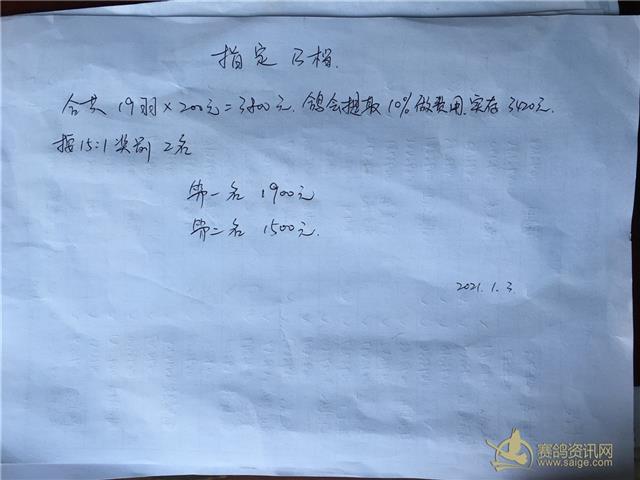 指定B档.
合共 19羽×200元=3800元. 鸽会提取10%做费用.实存3420元.
按15:1奖励 2名
第一名 1900元
第二名 1500元.
2021.1.3
赛鸽资讯网
www.saige.com